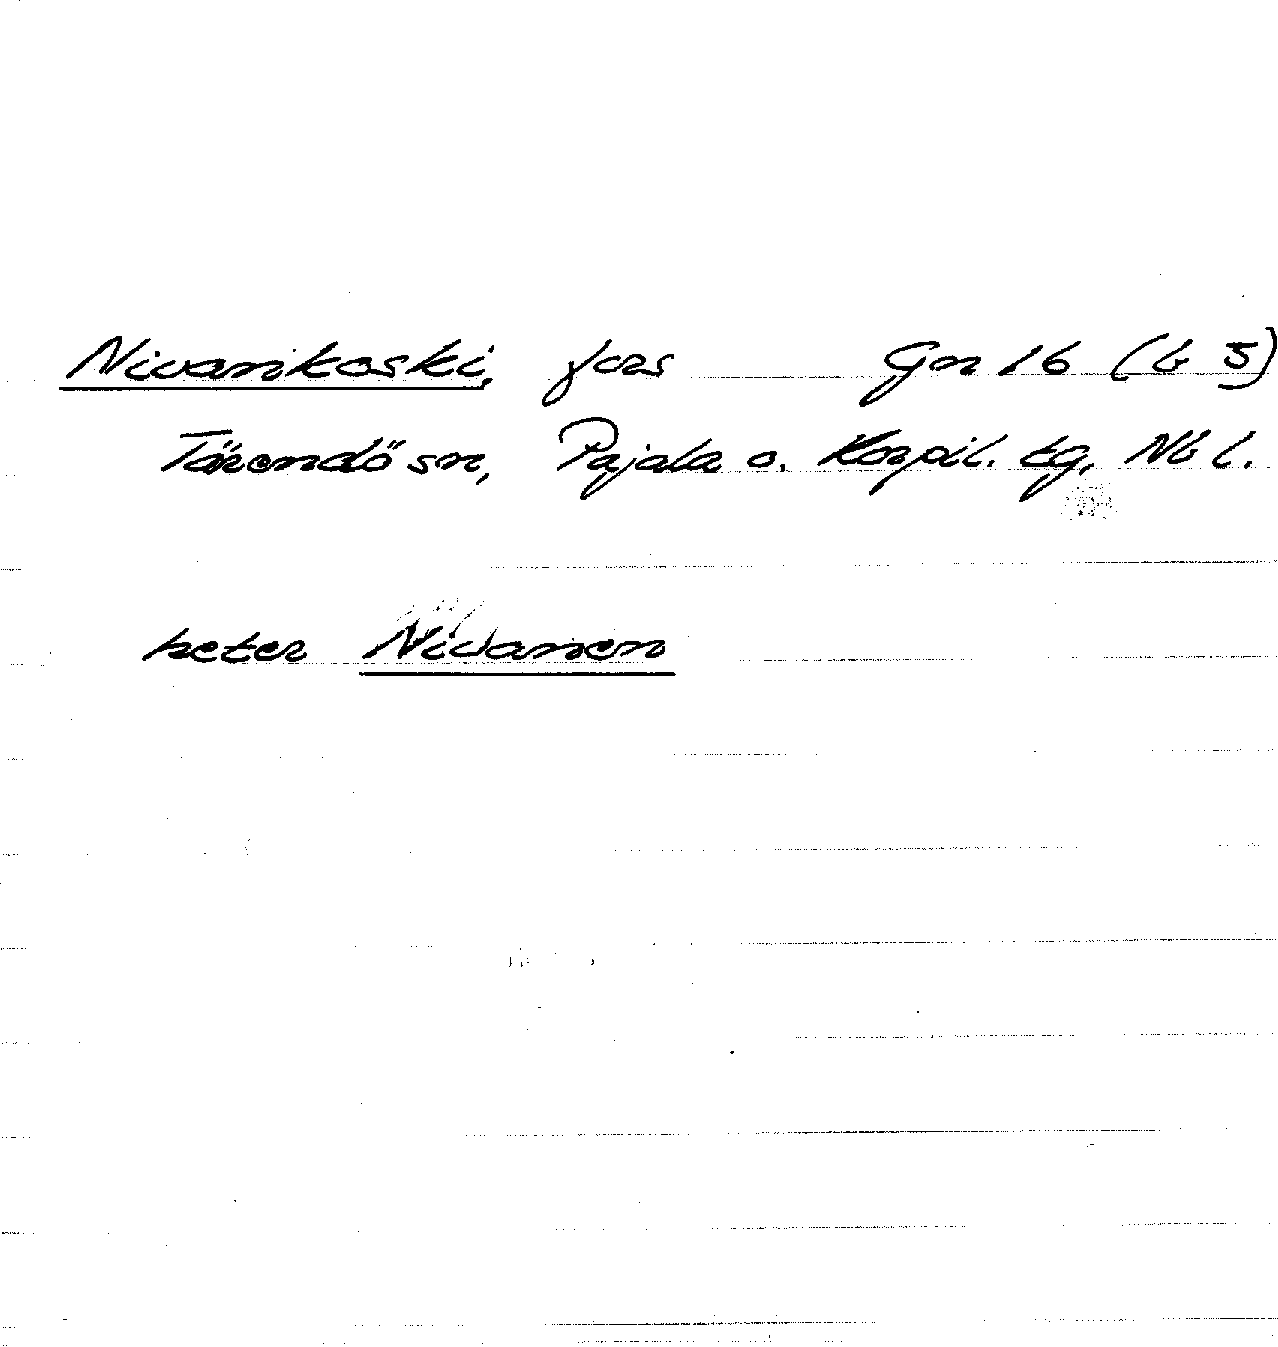 Nivankoski, fors Gn 16 (b 5)
Tärendö sn, Pajala o. Korpil. tg, Nb l.
heter Nivanen